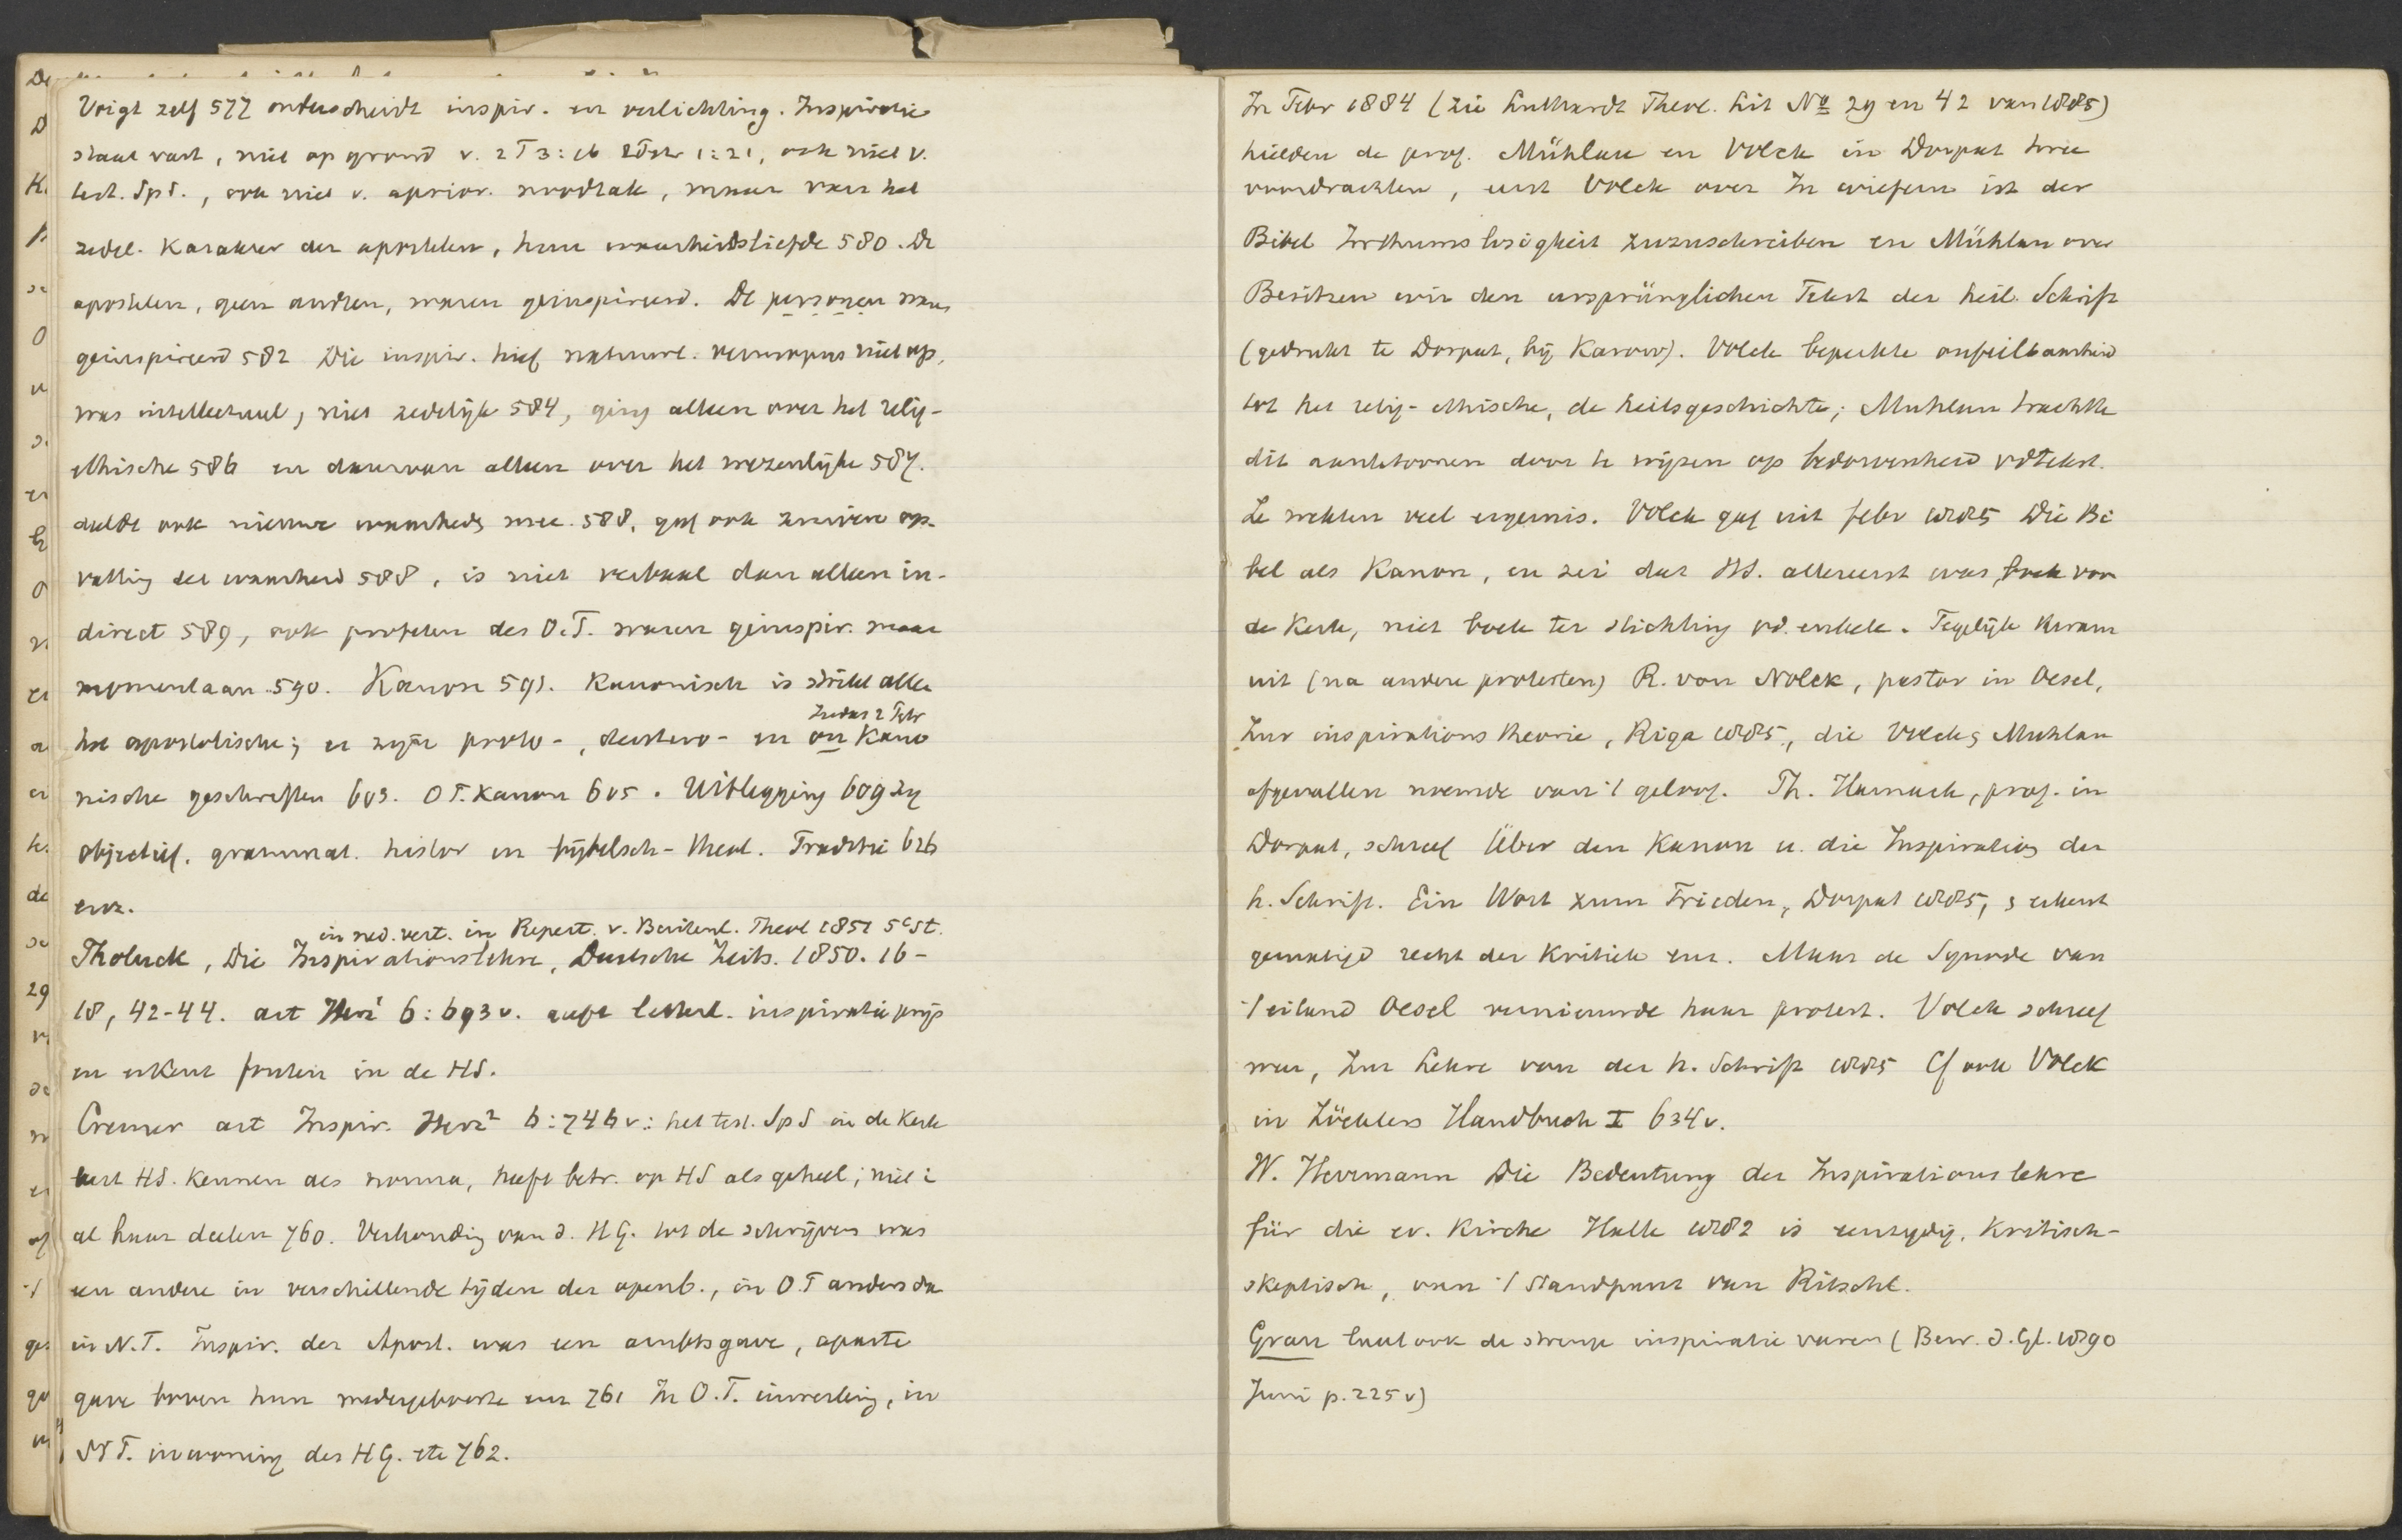 Voigt zelf 577 onderscheidt inspir. en verlichting. Inspiratie
staat vast, niet op grond v. 2 T 3:16 2 Petr 1:21, ook niet v.
test. SpS., ook niet v. aprior. noodzak, maar van het
zedel. karakter der apostelen, hun waarheidsliefde 580. De
apostelen, geen andren, waren geinspireerd. De personen waren
geinspireerd 582 Die inspir. hief natuurl. vermogens niet op,
was intellectueel, niet zedelijk 584, ging alleen over het relig-
ethische 586 en daarvan alleen over het wezenlijke 587.
deelde ook nieuwe waarheid mee 588, gaf ook zuivere op-
vatting der waarheid 588, is niet verbaal dan alleen in-
direct 589, ook profeten des O.T. waren geinspir. maar
momentaan 590. Kanon 591. Kanonisch is strikt alle
Judas 2 Petr
het apostolische; er zijn proto-, deutero- en on kano
nische geschriften 603. O T. Kanon 605. Uitlegging 609 zij
objectief. grammat. histor en bijbelsch-theol. Traditie 626
enz.
in ned. vert. in Repert. v. Buitenl. Theol 1851 5e St.
Tholuck, Die Inspirationslehre, Deutsche Zeits. 1850. 16-
18, 42-44. art Herz1 6:693 v. geeft letterl. inspiratie prijs
en erkent fouten in de HS.
Cremer art Inspir. Herz2 6:746 v: het test. SpS in de Kerk
leert HS. kennen als norma, heeft betr. op HS als geheel; niet i
al haar deelen 760. Verhouding van d. HG. tot de schrijvers was
een andere in verschillende tijden der openb., in O.T anders da
in N.T. Inspir. der Apost. was een ambtsgave, aparte
gave boven hun wedergeboorte enz 761 In O.T. inwerking, in
N T. inwoning des HG. etc 762.
In Febr 1884 (zie Luthardt Theol. Lit No 29 en 42 van 1885)
hielden de prof. Mühlau en Volck in Dorpat twee
voordrachten, eerst Volck over In wiefern ist der
Bibel Irrthumslosigkeit zuzuschreiben en Mühlau over
Besitzen wir den ursprünglichen Tekst der heil. Schrift
(gedrukt te Dorpat, bij Karow). Volck beperkte onfeilbaarheid
tot het relig-ethische, de heilsgeschichte; Muhlau trachtte
dit aantetoonen door te wijzen op bedorvenheid vdtekst.
Ze wekten veel ergernis. Volck gaf uit febr 1885 Die Bi
bel als Kanon, en zei dat HS. allereerst was boek voor
de Kerk, niet boek ter stichting vd. enkele. Tegelijk kwam
uit (na andere protesten) R. von Nolck, pastor in Oesel,
Zur inspirationstheorie, Riga 1885, die Volck en Muhlau
afgevallen noemde van 't geloof. Th. Harnack, prof. in
Dorpat, schreef Über den Kanon u. die Inspiration der
h. Schrift. Ein Wort zum Frieden, Dorpat 1885, en erkent
gematigd recht der Kritiek enz. Maar de Synode van
't eiland Oesel vernieuwde haar protest. Volck schreef
weer, Zur Lehre von der h. Schrift 1885 Cf ook Volck
in Zöcklers Handbuch I 634 v.
W. Herrmann Die Bedeutung der Inspirationslehre
für die ev. Kirche Halle 1882 is eenzijdig, kritisch-
skeptisch, van 't standpunt van Ritschl.
Grau laat ook de strenge inspiratie varen (Bew. d. Gl. 1890
Juni p. 225 v)